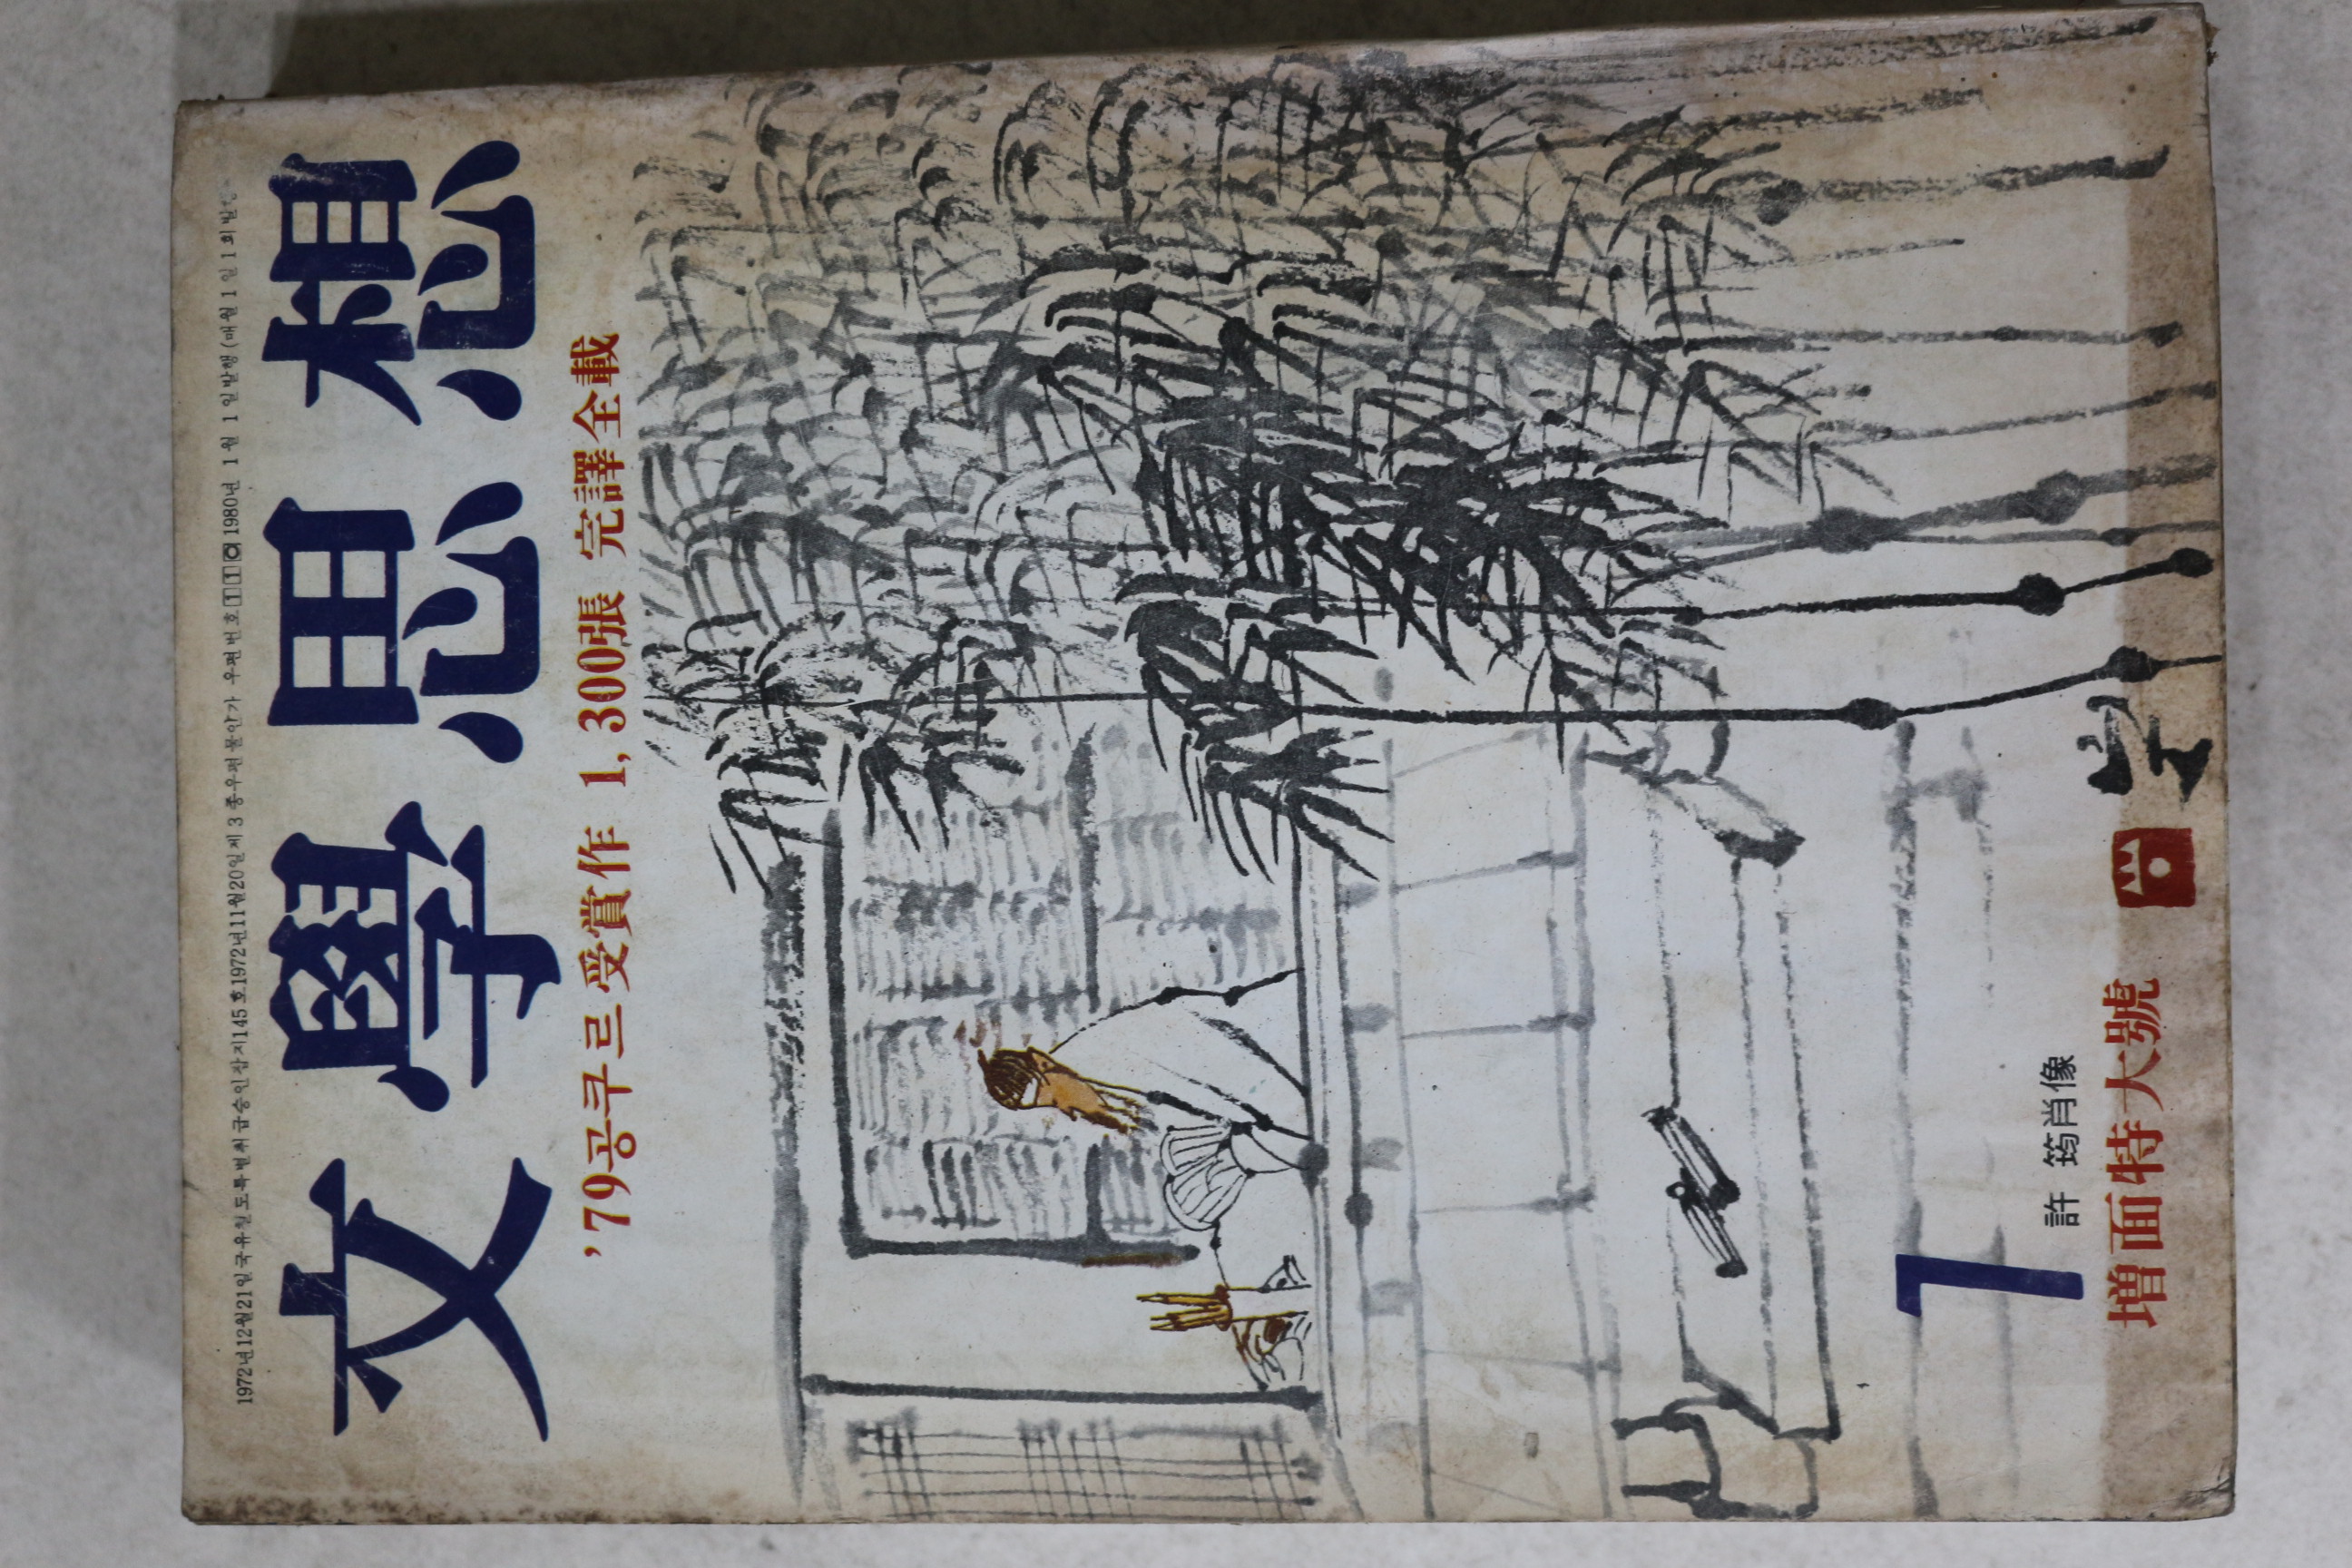 1972년12월21일 국유철도특별취급승인잡지145호 1972년11월20일 제3종우편물인가 우편번호 110 1980년 1월 1일발행 (매월1일1회발행
文學思想
'79공쿠르受賞作 1,300張 完譯全載
1
許 筠肖像
增面特大號